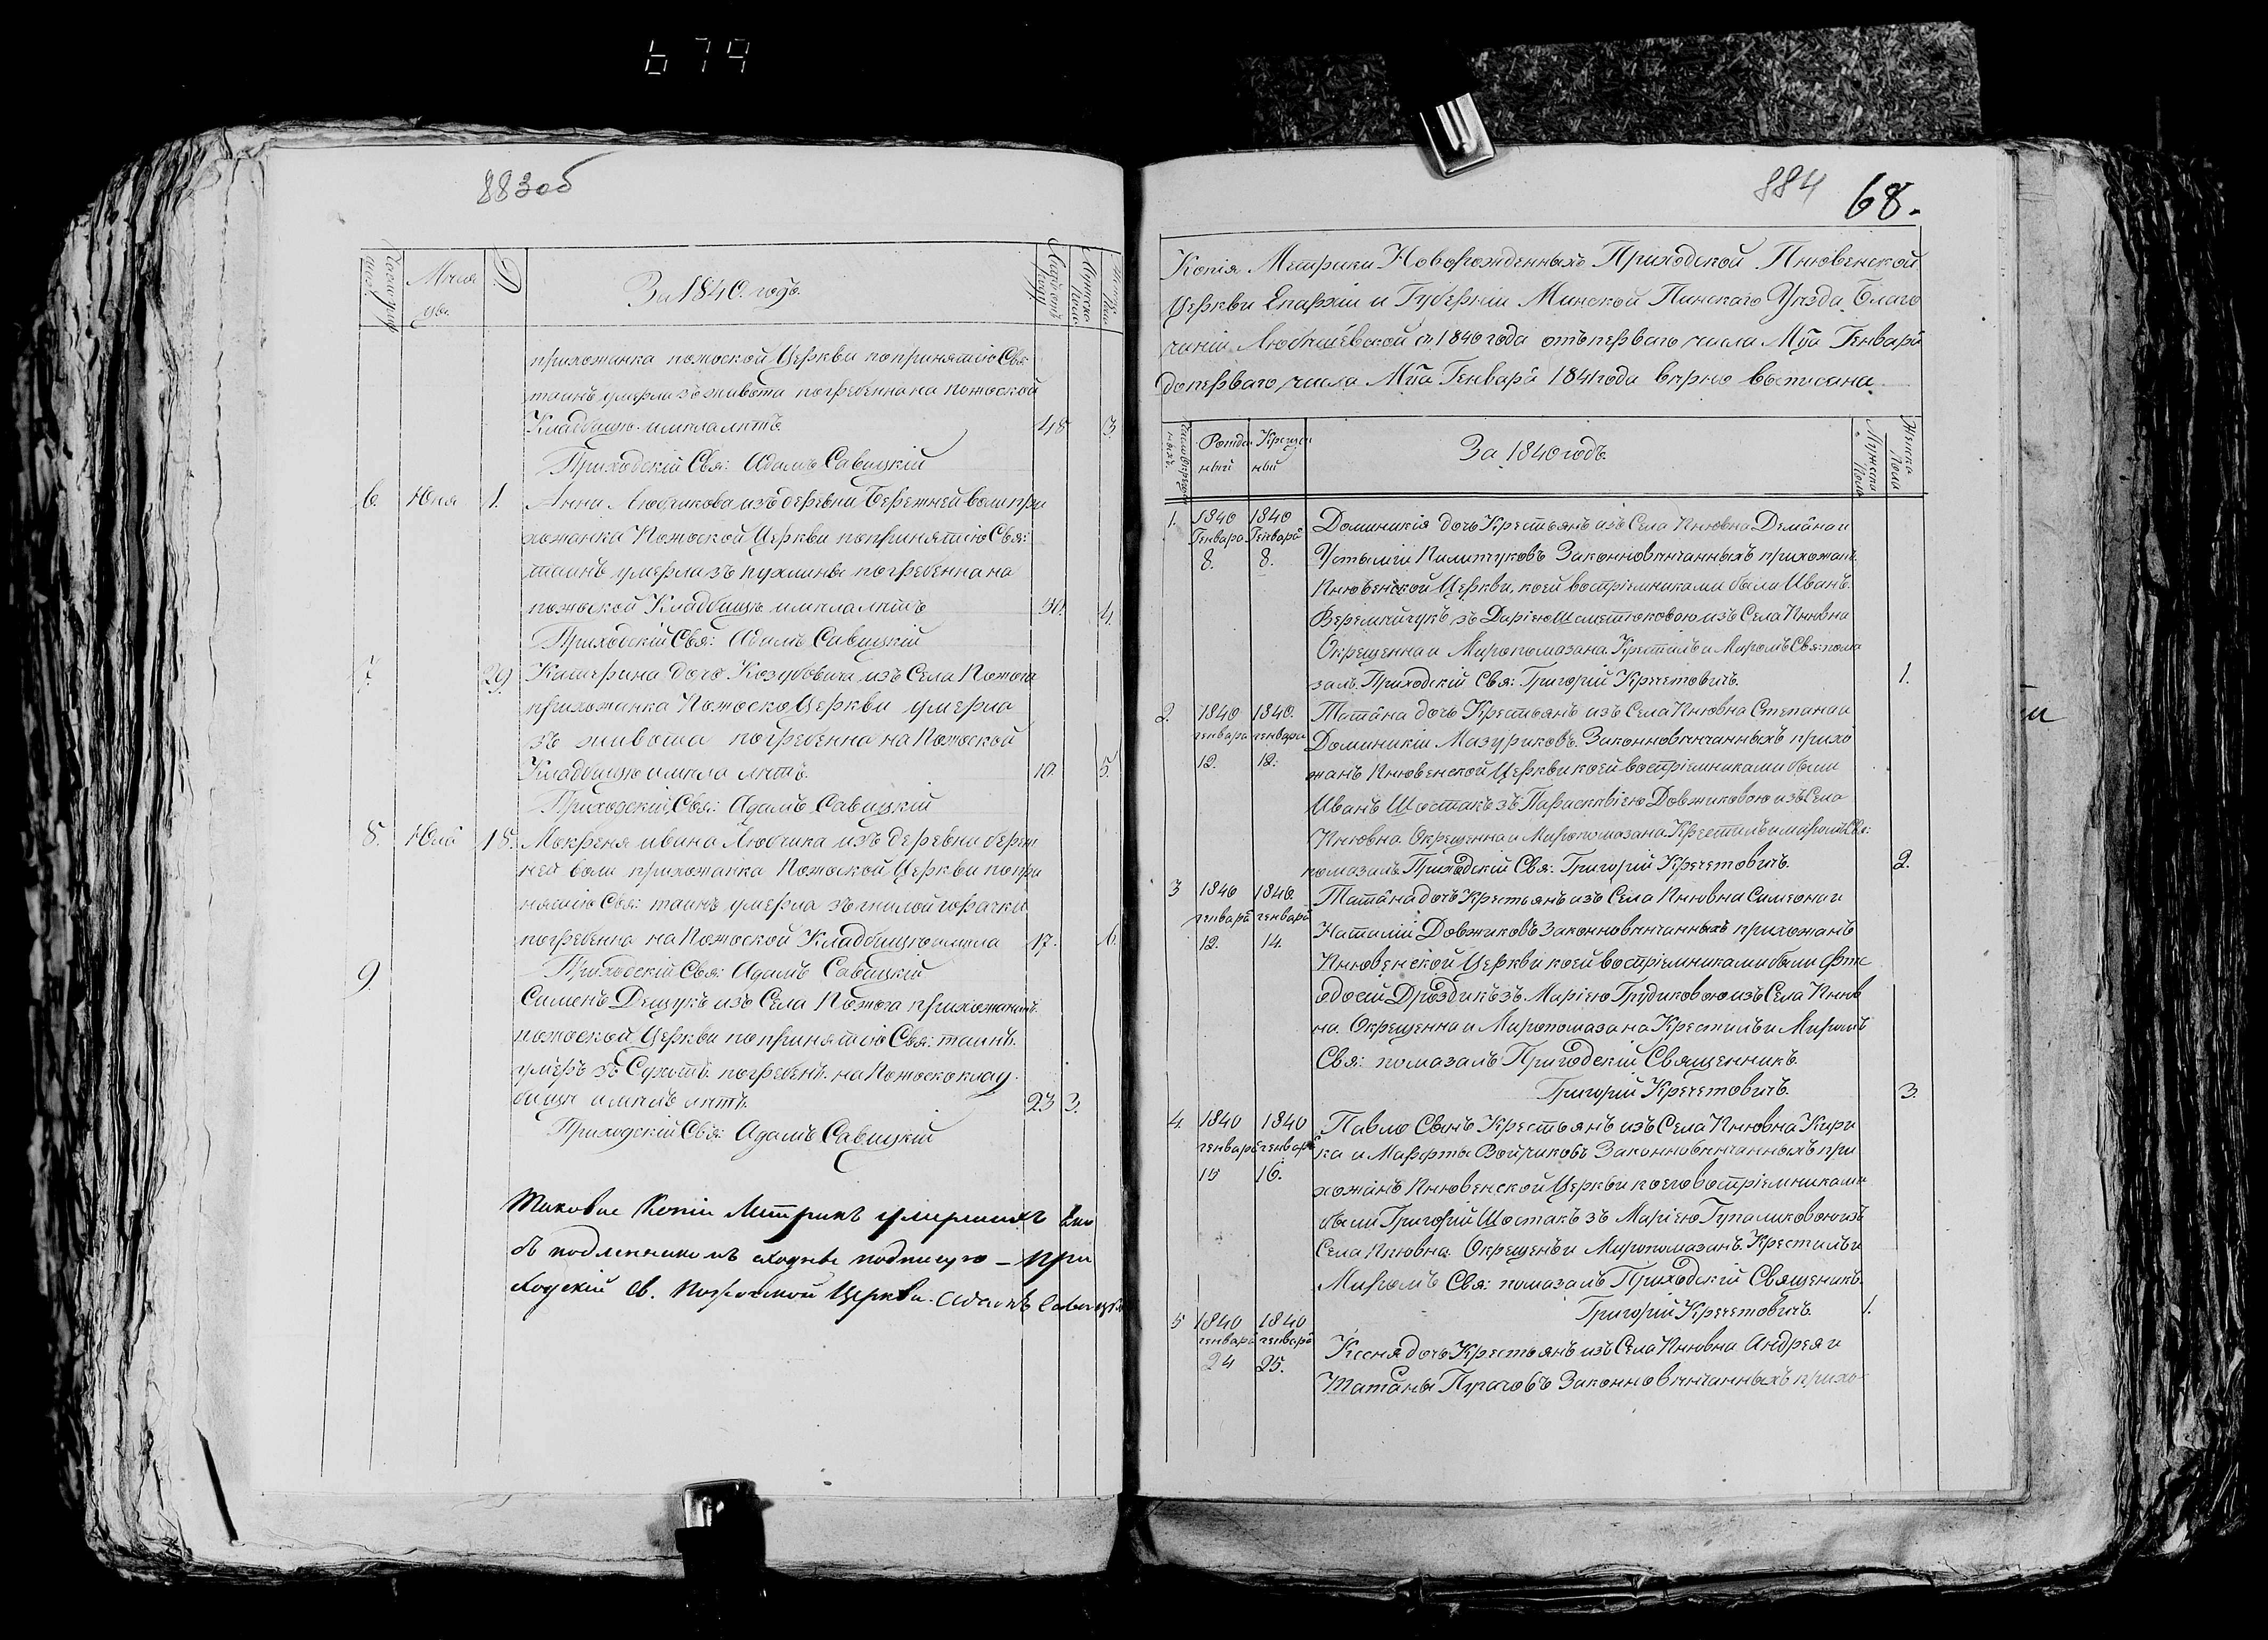 679
883об
За 1840. годъ.
прихожанка пожоской Церкви попринятію Свя:
таинъ умерла зъ живота погребенна на пожоской
Кладбищѣ имѣла лѣтъ 48 3.
Приходскій Свя: Адамъ Савицкій
6. Юня 1. Анна Любчикова изъ деревни Бережней воли при
хожанка Пожоской Церкви попринятію Свя:
таинъ умерла зъ пухлины погребенна на
пожоской Кладбищѣ имѣла лѣтъ 4.
Приходскій Свя: Адамъ Савицкій
7. 29 Катерина дочь Козубовича изъ Села Пожога
прихожанка Пожоско Церкви умерла
зъ живота погребенна на Пожоской
Кладбищѣ имѣла лѣтъ. 10. 5.
Приходскій Свя: Адамъ Савицкій
8. Юлй 18. Мокреня ивана Любчика изъ деревни береж
ней воли прихожанка Пожоской Церкви попри
нятію Свя: таинъ умерла зъ гнилой горачки
погребенна на Пожоской Кладбищѣ имѣла 17. 6.
Приходскій Свя: Адамъ Савицкій
9.
Сименъ Дещукъ изъ Села Пожога прихожанинъ
пожоской Церкви попринятію Свя: таинъ.
умеръ зъ Сухотъ. погребенъ. на Пожоско клад
бищи имѣлъ лѣтъ. 23 3.
Приходскій Свя: Адамъ Савицкій
Таковые Копіи Метрикъ умершихъ
съ подленникомъ сходные подписую – при
ходскій Св. Пожоской Церкви. Адамъ Савицкій
884 68.
Копія Метрики Новорожденныхъ Приходской Пнювенской
Церкви Епархіи и Губерніи Минской Пинскаго Уѣзда. Благо
чинія Любешевской съ 1840 года отъ перваго числа Мца Генвара
до перваго числа Мца Генвара 1841 года вѣрно выписана.
Рожден Крещен
ный ный
За 1840 годъ
Мужеска Пола
Женска Пола
1. 1840 1840 Доминикія дочь Крестьянъ изъ Села Пнювна Демяна и
Генвара Генвара
8. 8. Устыміи Пилипчуковъ Законновѣнчанныхъ прихожанъ.
Пнювенской Церкви, коей воспріемниками были Иванъ.
Веремийчукъ зъ Дарією Шеметюковою изъ Села Пнювна
Окрещенна и Миропомазана. Крестилъ и Миромъ Свя: пома
залъ. Приходскій Свя: Григорій Кречетовичъ. 1.
2. 1840 1840. Татяна дочь Крестьянъ изъ Села Пнювна Степана и
генвара генвара Доминикіи Мазуриковъ. Законновѣнчанныхъ прихо
12. 12. жанъ Пнювенской Церкви коей воспріемниками были
Иванъ Шостакъ зъ Параскквією Довжиковою изъ Села
Пнювна. Окрещенна и Миропомазана. Крестилъ и миромъ Свя:
помазалъ Приходскій Свя: Григорій Кречетовичъ. 2.
3 1840 1840. Татяна дочь Крестьянъ изъ Села Пнювна Симеона и
генвара генвара
12. 14. Наталіи Довжиковъ Законновѣнчанныхъ прихожанъ
Пнювенской Церкви коей воспріемниками были Фте
одосій Дроздикъ зъ Марією Грудиковою изъ Села Пнюв
на. Окрещенна и Миропомазана Крестилъ и Миромъ
Свя: помазалъ Приходскій Священникъ.
Григорій Кречетовичъ. 3.
4 1840 1840 Павло Сынъ Крестьянъ изъ Села Пнювна Кири
генвара генвара ка и Марфты Войчиковъ Законновѣнчанныхъ при
15 16. хожанъ Пнювенской Церкви коего воспріемниками
были Григорій Шостакъ зъ Марією Гупаликовою изъ
Села Пнювна. Окрещенъ и Миропомазанъ. Крестилъ и
Миромъ Свя: помазалъ Приходскій Священикъ.
Григорій Кречетовичъ. 1.
5 1840 1840
генвара генвара Ксеня дочь Крестьянъ изъ Села Пнювна Андрея и
24 25.
Татяны Пугачовъ Законновѣнчанныхъ прихо